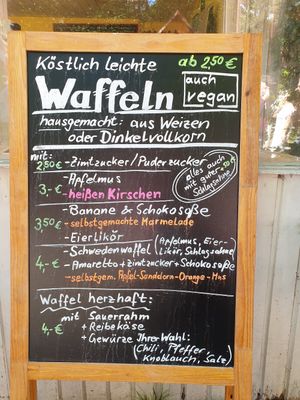 Köstlich leichte ab 2,50 €
Waffeln
auch vegan
hausgemacht: aus Weizen
oder Dinkelvollkorn
mit:
2,50 € - Zimtzucker/Puderzucker
- Apfelmus
3,- € - heißen Kirschen
alles auch
mit guter
Schlagsahne
- Banane & Schokosoße
3,50 € - selbstgemachte Marmelade
- Eierlikör
- Schwedenwaffel (Apfelmus, Eier-
likör, Schlagsahne)
4,- € - Amaretto + Zimtzucker + Schokosoße
- selbstgem. Apfel-Sanddorn-Orange-Mus
Waffel herzhaft:
mit Sauerrahm
4,- € + Reibekäse
+ Gewürze Ihrer Wahl:
(Chili, Pfeffer,
Knoblauch, Salz)